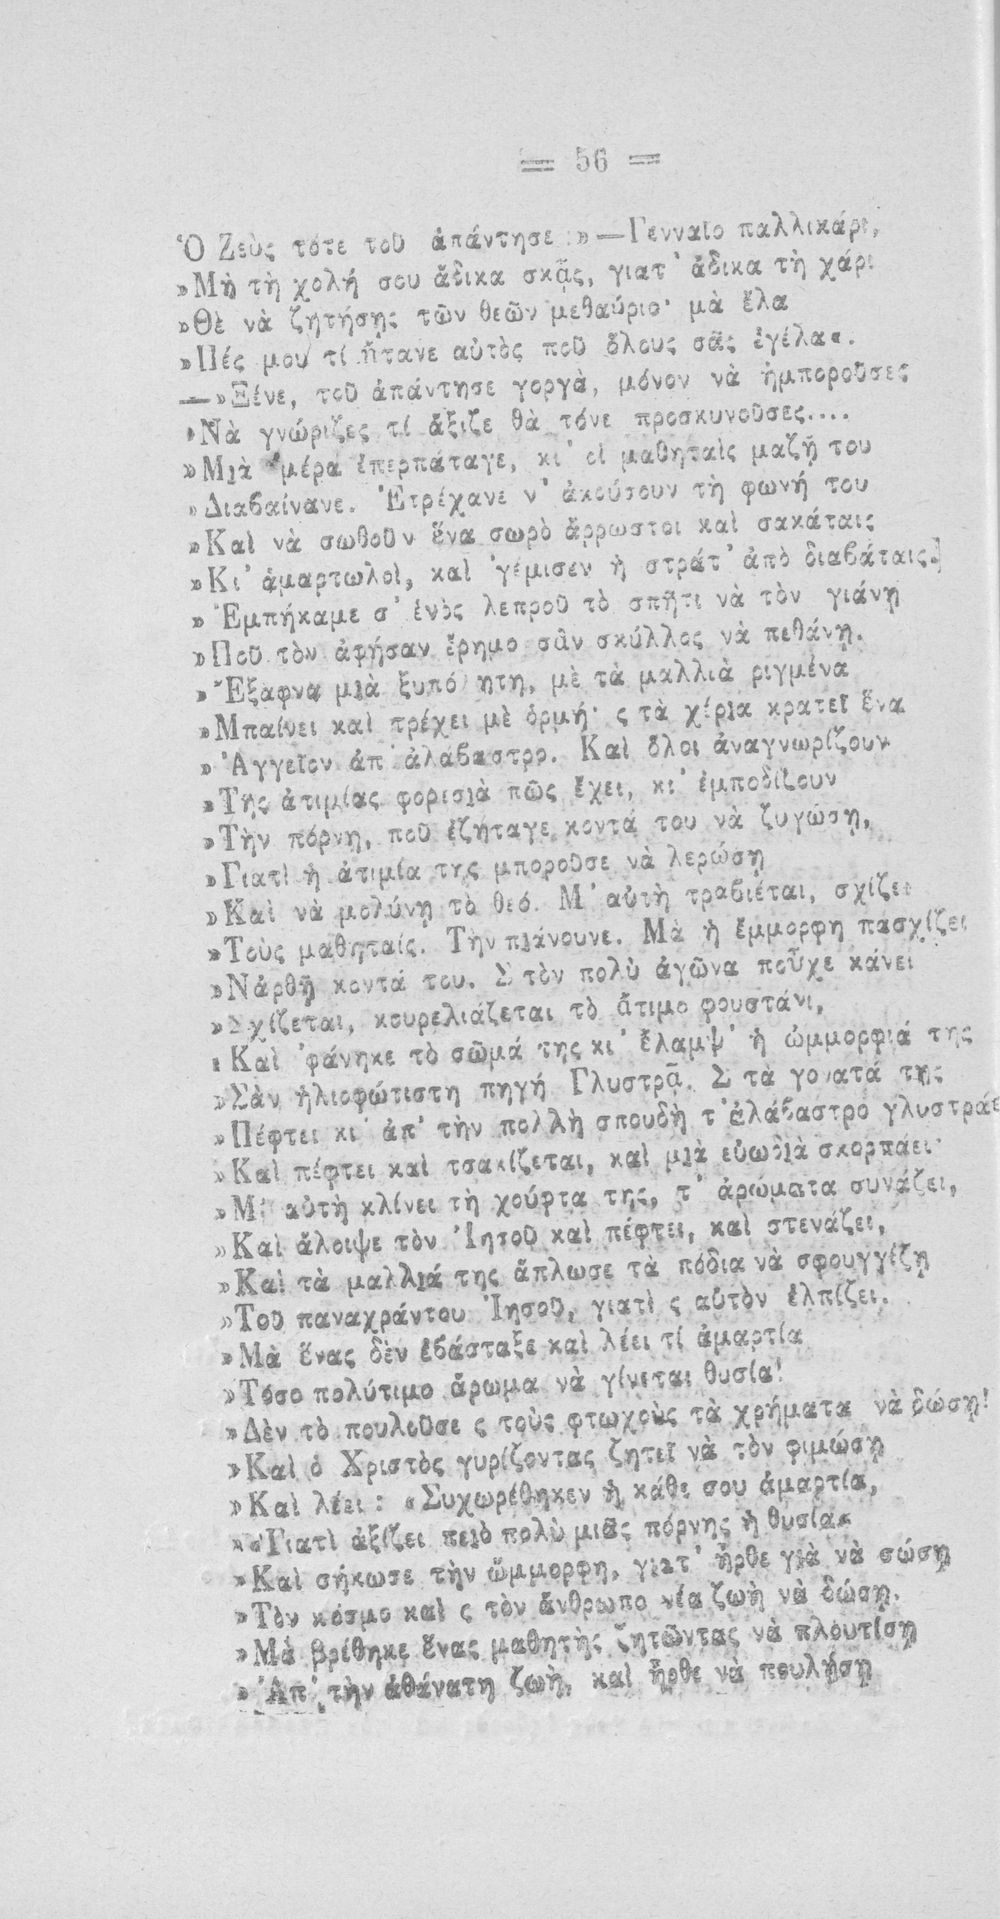 = 56 =
Ὁ Ζεὺς τότε τοῦ ἀπάντησε :» —Γενναῖο παλλικάρι,
»Μὴ τὴ χολή σου ἄδικα σκᾷς, γιατ' ἄδικα τὴ χάρι
»Θὲ νὰ ζητήσῃς τῶν θεῶν μεθαύριο· μὰ ἔλα
»Πές μου τί ἤτανε αὐτὸς ποῦ ὅλους σᾶς ἐγέλα«.
—»Ξένε, τοῦ ἀπάντησε γοργὰ, μόνον νὰ ἠμποροῦσες
»Νὰ γνώριζες τί ἄξιζε θὰ τόνε προσκυνοῦσες....
»Μιὰ 'μέρα ἐπερπάταγε, κι' οἱ μαθηταὶς μαζῆ του
»Διαβαίνανε. Ἐτρέχανε ν' ἀκούσουν τὴ φωνή του
»Καὶ νὰ σωθοῦν ἕνα σωρὸ ἄρρωστοι καὶ σακάταις
»Κι' ἁμαρτωλοὶ, καὶ 'γέμισεν ἡ στράτ' ἀπὸ διαβάταις.
» Ἐμπήκαμε σ' ἑνὸς λεπροῦ τὸ σπῆτι νὰ τὸν γιάνῃ
»Ποῦ τὸν ἀφήσαν ἔρημο σὰν σκύλλος νὰ πεθάνῃ.
» Ἔξαφνα μιὰ ξυπόλητη, μὲ τὰ μαλλιὰ ριγμένα
»Μπαίνει καὶ τρέχει μὲ ὁρμή· ς τὰ χέρια κρατεῖ ἕνα
» Ἀγγεῖον ἀπ' ἀλάβαστρο. Καὶ ὅλοι ἀναγνωρίζουν
»Τῆς ἀτιμίας φορεσιὰ πῶς ἔχει, κι' ἐμποδίζουν
»Τὴν πόρνη, ποῦ ἐζήταγε κοντά του νὰ ζυγώσῃ,
»Γιατὶ ἡ ἀτιμία της μποροῦσε νὰ λερώσῃ
»Καὶ νὰ μολύνῃ τὸ θεό. Μ' αὐτὴ τραβιέται, σχίζει
»Τοὺς μαθηταίς. Τὴν πιάνουνε. Μὰ ἡ ἔμμορφη πασχίζει
»Νἀρθῇ κοντά του. Σ τὸν πολὺ ἀγῶνα ποὖχε κάνει
»Σχίζεται, κουρελιάζεται τὸ ἄτιμο φουστάνι,
»Καὶ 'φάνηκε τὸ σῶμά της κι' ἔλαμψ' ἡ ὠμμορφιά της
»Σὰν ἡλιοφώτιστη πηγή Γλυστρᾷ. Σ τὰ γονατά της
»Πέφτει κι' ἀπ' τὴν πολλὴ σπουδὴ τ' ἀλάβαστρο γλυστράει
»Καὶ πέφτει καὶ τσακίζεται, καὶ μιὰ εὐωδιὰ σκορπάει·
»Μ' αὐτὴ κλίνει τὴ χούφτα της, τ' ἀρώματα συνάζει,
»Καὶ ἄλοιψε τὸν Ἰησοῦ καὶ πέφτει, καὶ στενάζει,
»Καὶ τὰ μαλλιά της ἅπλωσε τὰ πόδια νὰ σφουγγίζῃ
»Τοῦ παναχράντου Ἰησοῦ, γιατὶ ς αὐτὸν ἐλπίζει.
»Μὰ ἕνας δὲν ἐβάσταξε καὶ λέει τί ἁμαρτία
»Τόσο πολύτιμο ἄρωμα νὰ γίνεται θυσία!
»Δὲν τὸ πουλοῦσε ς τοὺς φτωχοὺς τὰ χρήματα νὰ δώσῃ!
»Καὶ ὁ Χριστὸς γυρίζοντας ζητεῖ νὰ τὸν φιμώσῃ
»Καὶ λέει : «Συχωρέθηκεν ἡ κάθε σου ἁμαρτία,
»«Γιατὶ ἀξίζει πειὸ πολὺ μιᾶς πόρνης ἡ θυσία«
»Καὶ σήκωσε τὴν ὤμμορφη, γιατ' ἦρθε γιὰ νὰ σώσῃ
»Τὸν κόσμο καὶ ς τὸν ἄνθρωπο νέα ζωὴ νὰ δώσῃ.
»Μὰ βρέθηκε ἕνας μαθητὴς ζητῶντας νὰ πλουτίσῃ
» Ἀπ' τὴν ἀθάνατη ζωὴ, καὶ ἦρθε νὰ πουλήσῃ